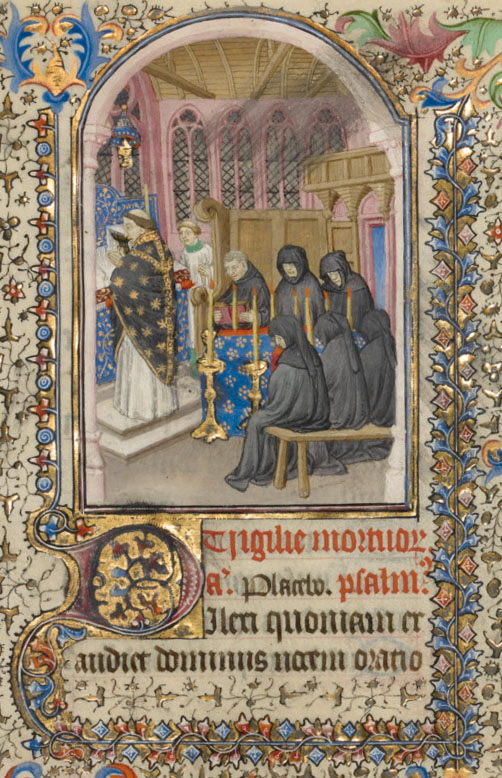 Vigilie mortuoꝝ
aⁿ. Placebo. psalmꝰ
DIlexi quoniam ex
audiet dominus uocem oratio